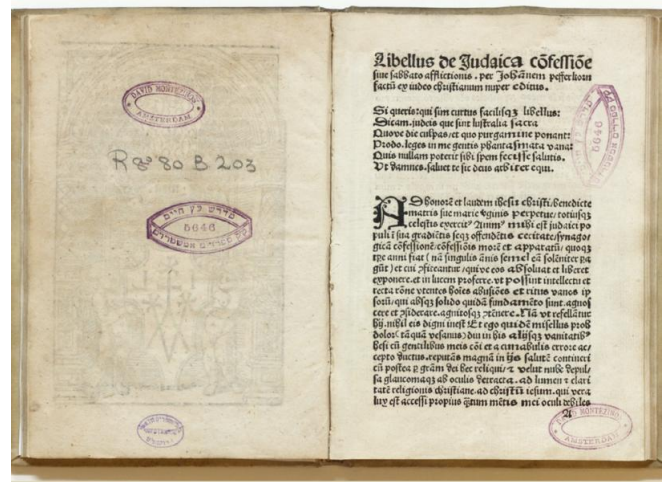 DAVID MONTEZINOS
AMSTERDAM
R ao 80 B 203
בית מדרש עץ חיים
6646
Libellus de Judaica cōfessiōe
siue sabbato afflictionis. per Johānem pefferkorn
factū ex iudeo christianum nuper editus.
Si queris: qui sim curtus facilisqꝫ libellus:
Dicam. judeis que sint lustralia sacra
Quove die culpas: et quo purgamine ponant:
Prodo. leges in me gentis phantasmata vanae
Quis nullam poterit sibi spem fecisse salutis.
Ut damnes. saluet te sic deus arbiter equi.
AD honorē et laudem ihesu christi. benedicte
matris sue marie virginis perpetue/ totiusqꝫ
celestis exercitꝰ Animꝰ mihi est judaici po
puli
gicā cōfessionē: cōfessiōis morē et apparatū/ quoqꝫ
tpe anni fiat (nā singulis ānis semel eā solēniter
gūt) et cui pfiteantur/ quive eos absoluat et liberet
exponere. et in lucem proferre. vt possint intellectu et
recta rōne vtentes hoīes abusiōes et ritus vanos
sorū/ qui absqꝫ solido quidā fundamēto sunt. agnos
cere et ꝯsiderare. agnitosqꝫ ꝯtēnere. Nā vt refellātur
hij. nihil eis digni inest Et ego quidē misellus proh
dolor: tāquā vesanus) diu in his alijsqꝫ vanitatibꝰ
hesi cū gentilibus meis cōi et a cunabulis errore ac/
cepto ductus. reputās magnā in ijs salutē contineri
cū postea ꝑ gram dei hec reliqui/ ⁊ velut nube depul/
sa glaucomaqꝫ ab oculis detracta. ad lumen ⁊ clari
tatē religionis christiane. ad christū iesum. qui vera
lux est accessi propius ꝙtum mētis mei oculi debiles
DAVID MONTEZINOS
AMSTERDAM